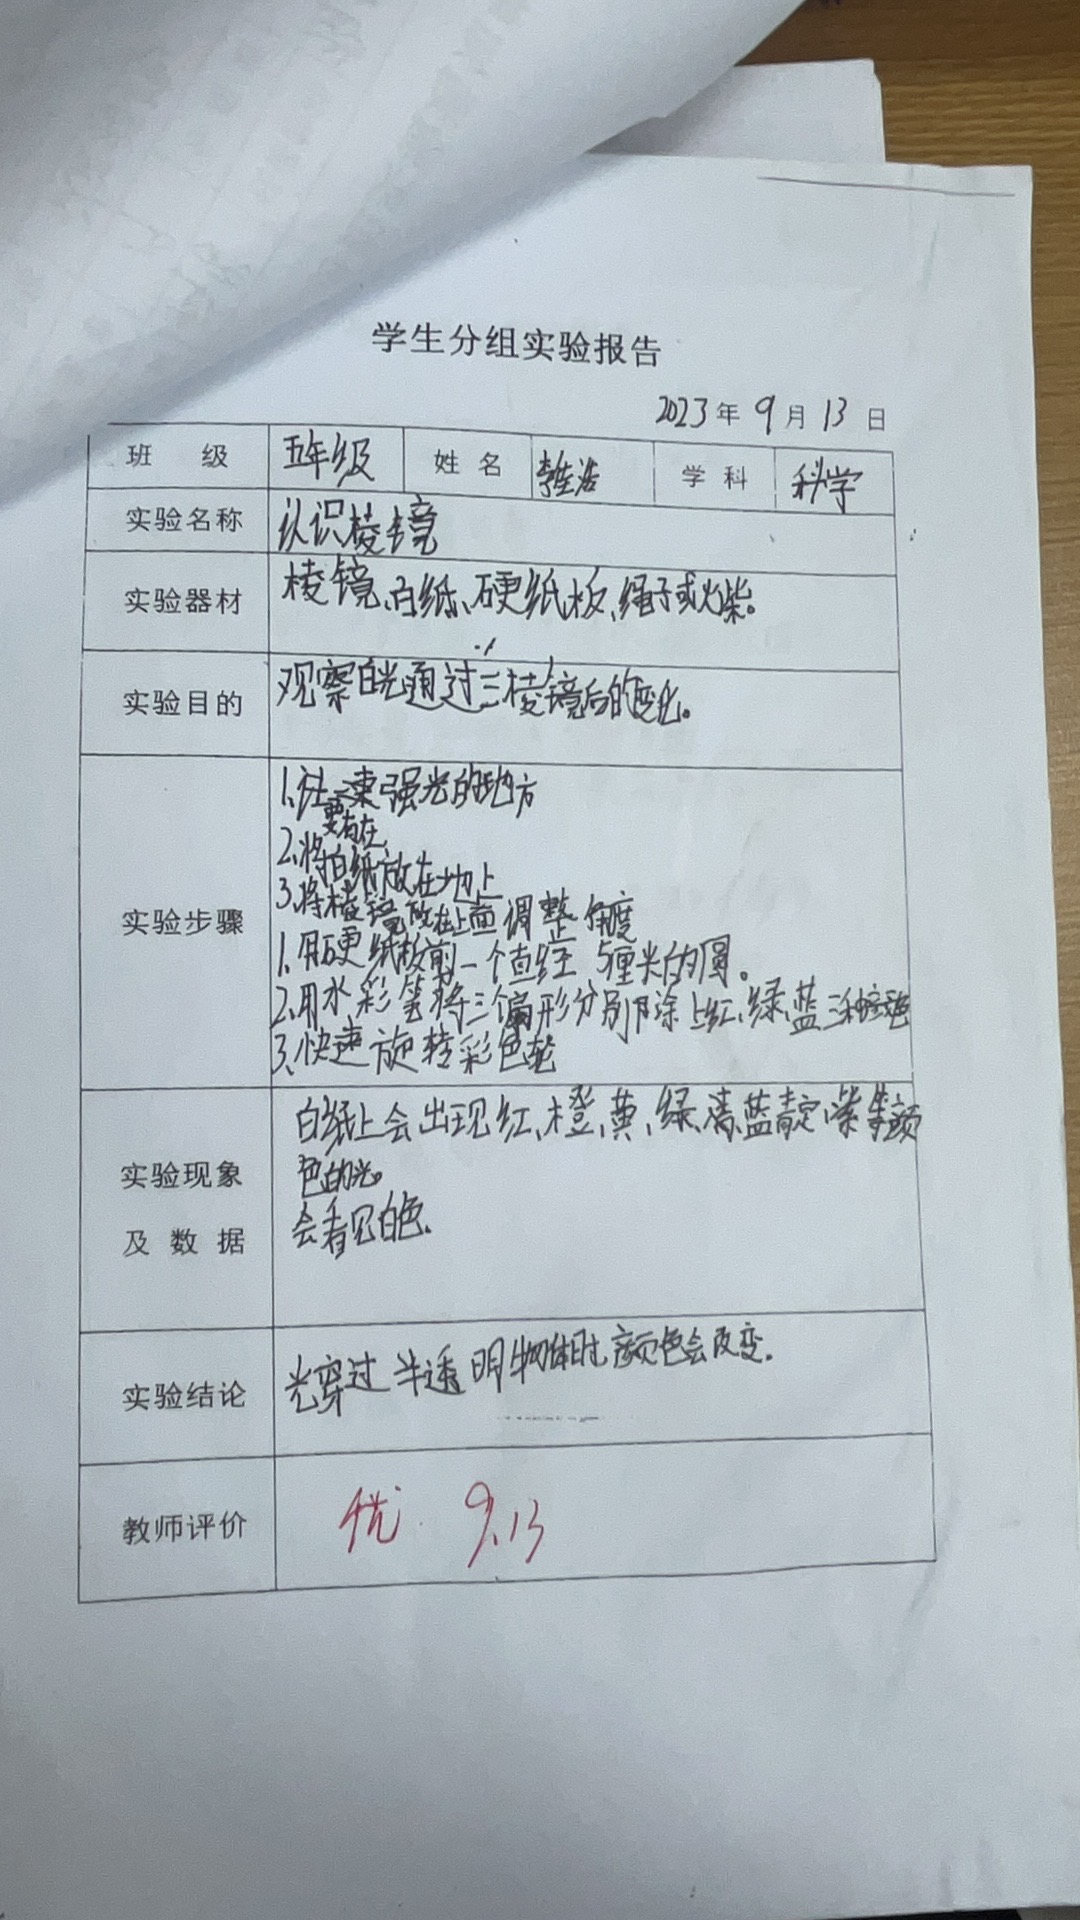 学生分组实验报告
2023年9月13日
班 级 五年级 姓 名 李 浩 学 科 科学
实验名称 认识棱镜
实验器材 棱镜、白纸、硬纸板、绳子或火柴。
实验目的 观察白光通过三棱镜后的变化。
实验步骤
1、让一束强光的地方
要有在
2、将白纸放在地上
3、将棱镜放在上面调整角度
1、用硬纸板剪一个直经5厘米的圆。
2、用水彩笔将三个扁形分别涂上红、绿、蓝三种颜色
3、快速旋转彩色轮
实验现象
及 数 据
白纸上会出现红、橙、黄、绿、蓝靛、紫等颜
色的光。
会看见白色.
实验结论 光穿过半透明物体时颜色会改变.
教师评价 优 9.13